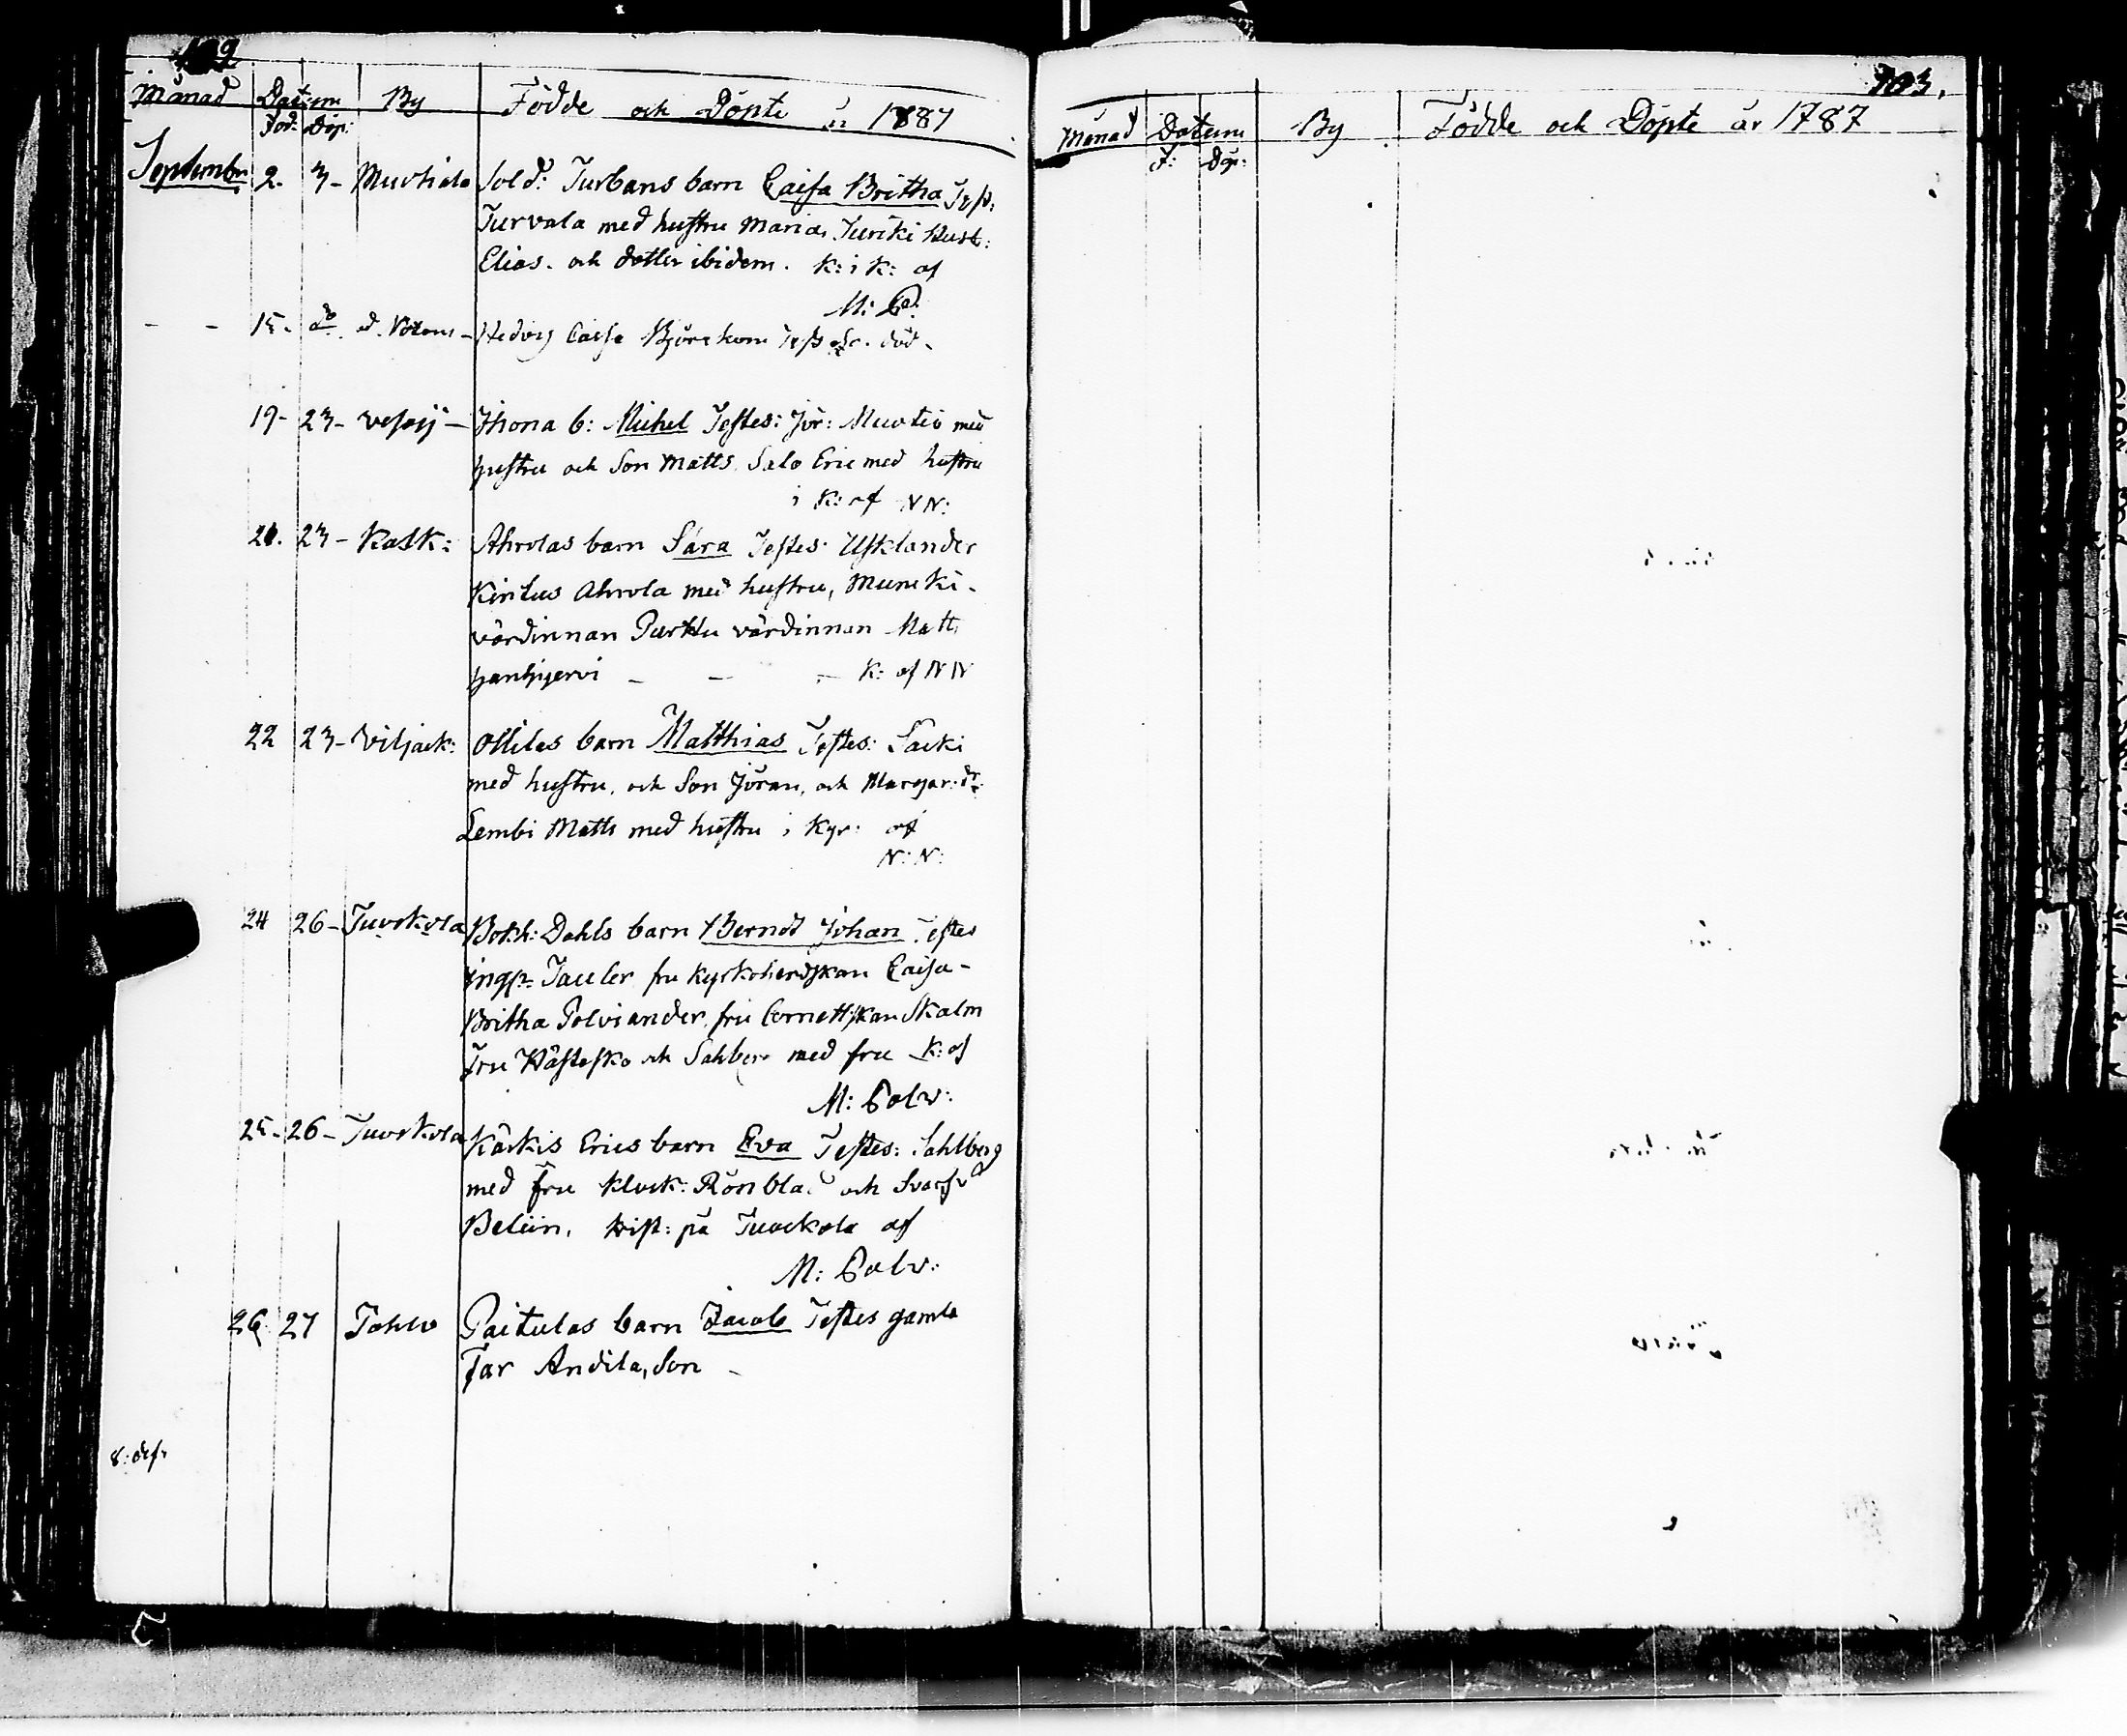 Månad Datum By Födde och Döpte år 1787
Föd: Döp:
September 2. 3- Muuriala Sold: Turbans barn Caisa Britha Test:
Turvala med hustru Maria, Juriki Husb:
Elias. och dotter ibidem. K: i K: af
M: P:
- - 15. do. Hedvig Caisa Björckom Test &c. död.
19- 23- Vesijj - Jhona b: Michel Testes: Jör: Muotio med
hustru och Son Matts. Salo Eric med hustru
i K: af NN:
21. 23- Kalk: Ahrolas barn Sara Testes: Usklander
Ahrola med hustru, Muroki-
värdinnan Purttu värdinnan Matt.
hanhijervi - - - K: af NN
22 23- Viljack: Ollilas barn Matthias Testes: Lacki
med hustru, och Son Jöran, och Margar: dr:
Lembi Matts med hustru i Kyr: af
N: N:
24 26- Tuorkola Bokh: Dahls barn Berndt Johan Testes
Tauler fru Kyrkoherdskan Caisa-
Britha Polviander, fru Cornettskan Skalm
Fru Hästesko och Sahlberg med fru K: af
M: Polv:
25- 26- Tuorkola Kärkis Erics barn Eva Testes: Sahlberg
med fru Klock: Rönblad och
Beliin. krist: på Tuorkola af
M: Polv:
26 27 Tohlo Paitulas barn Jacob Testes gamla
Far Andila, Son -
103.
Månad Datum By Födde och Döpte år 1787
F: Döp: